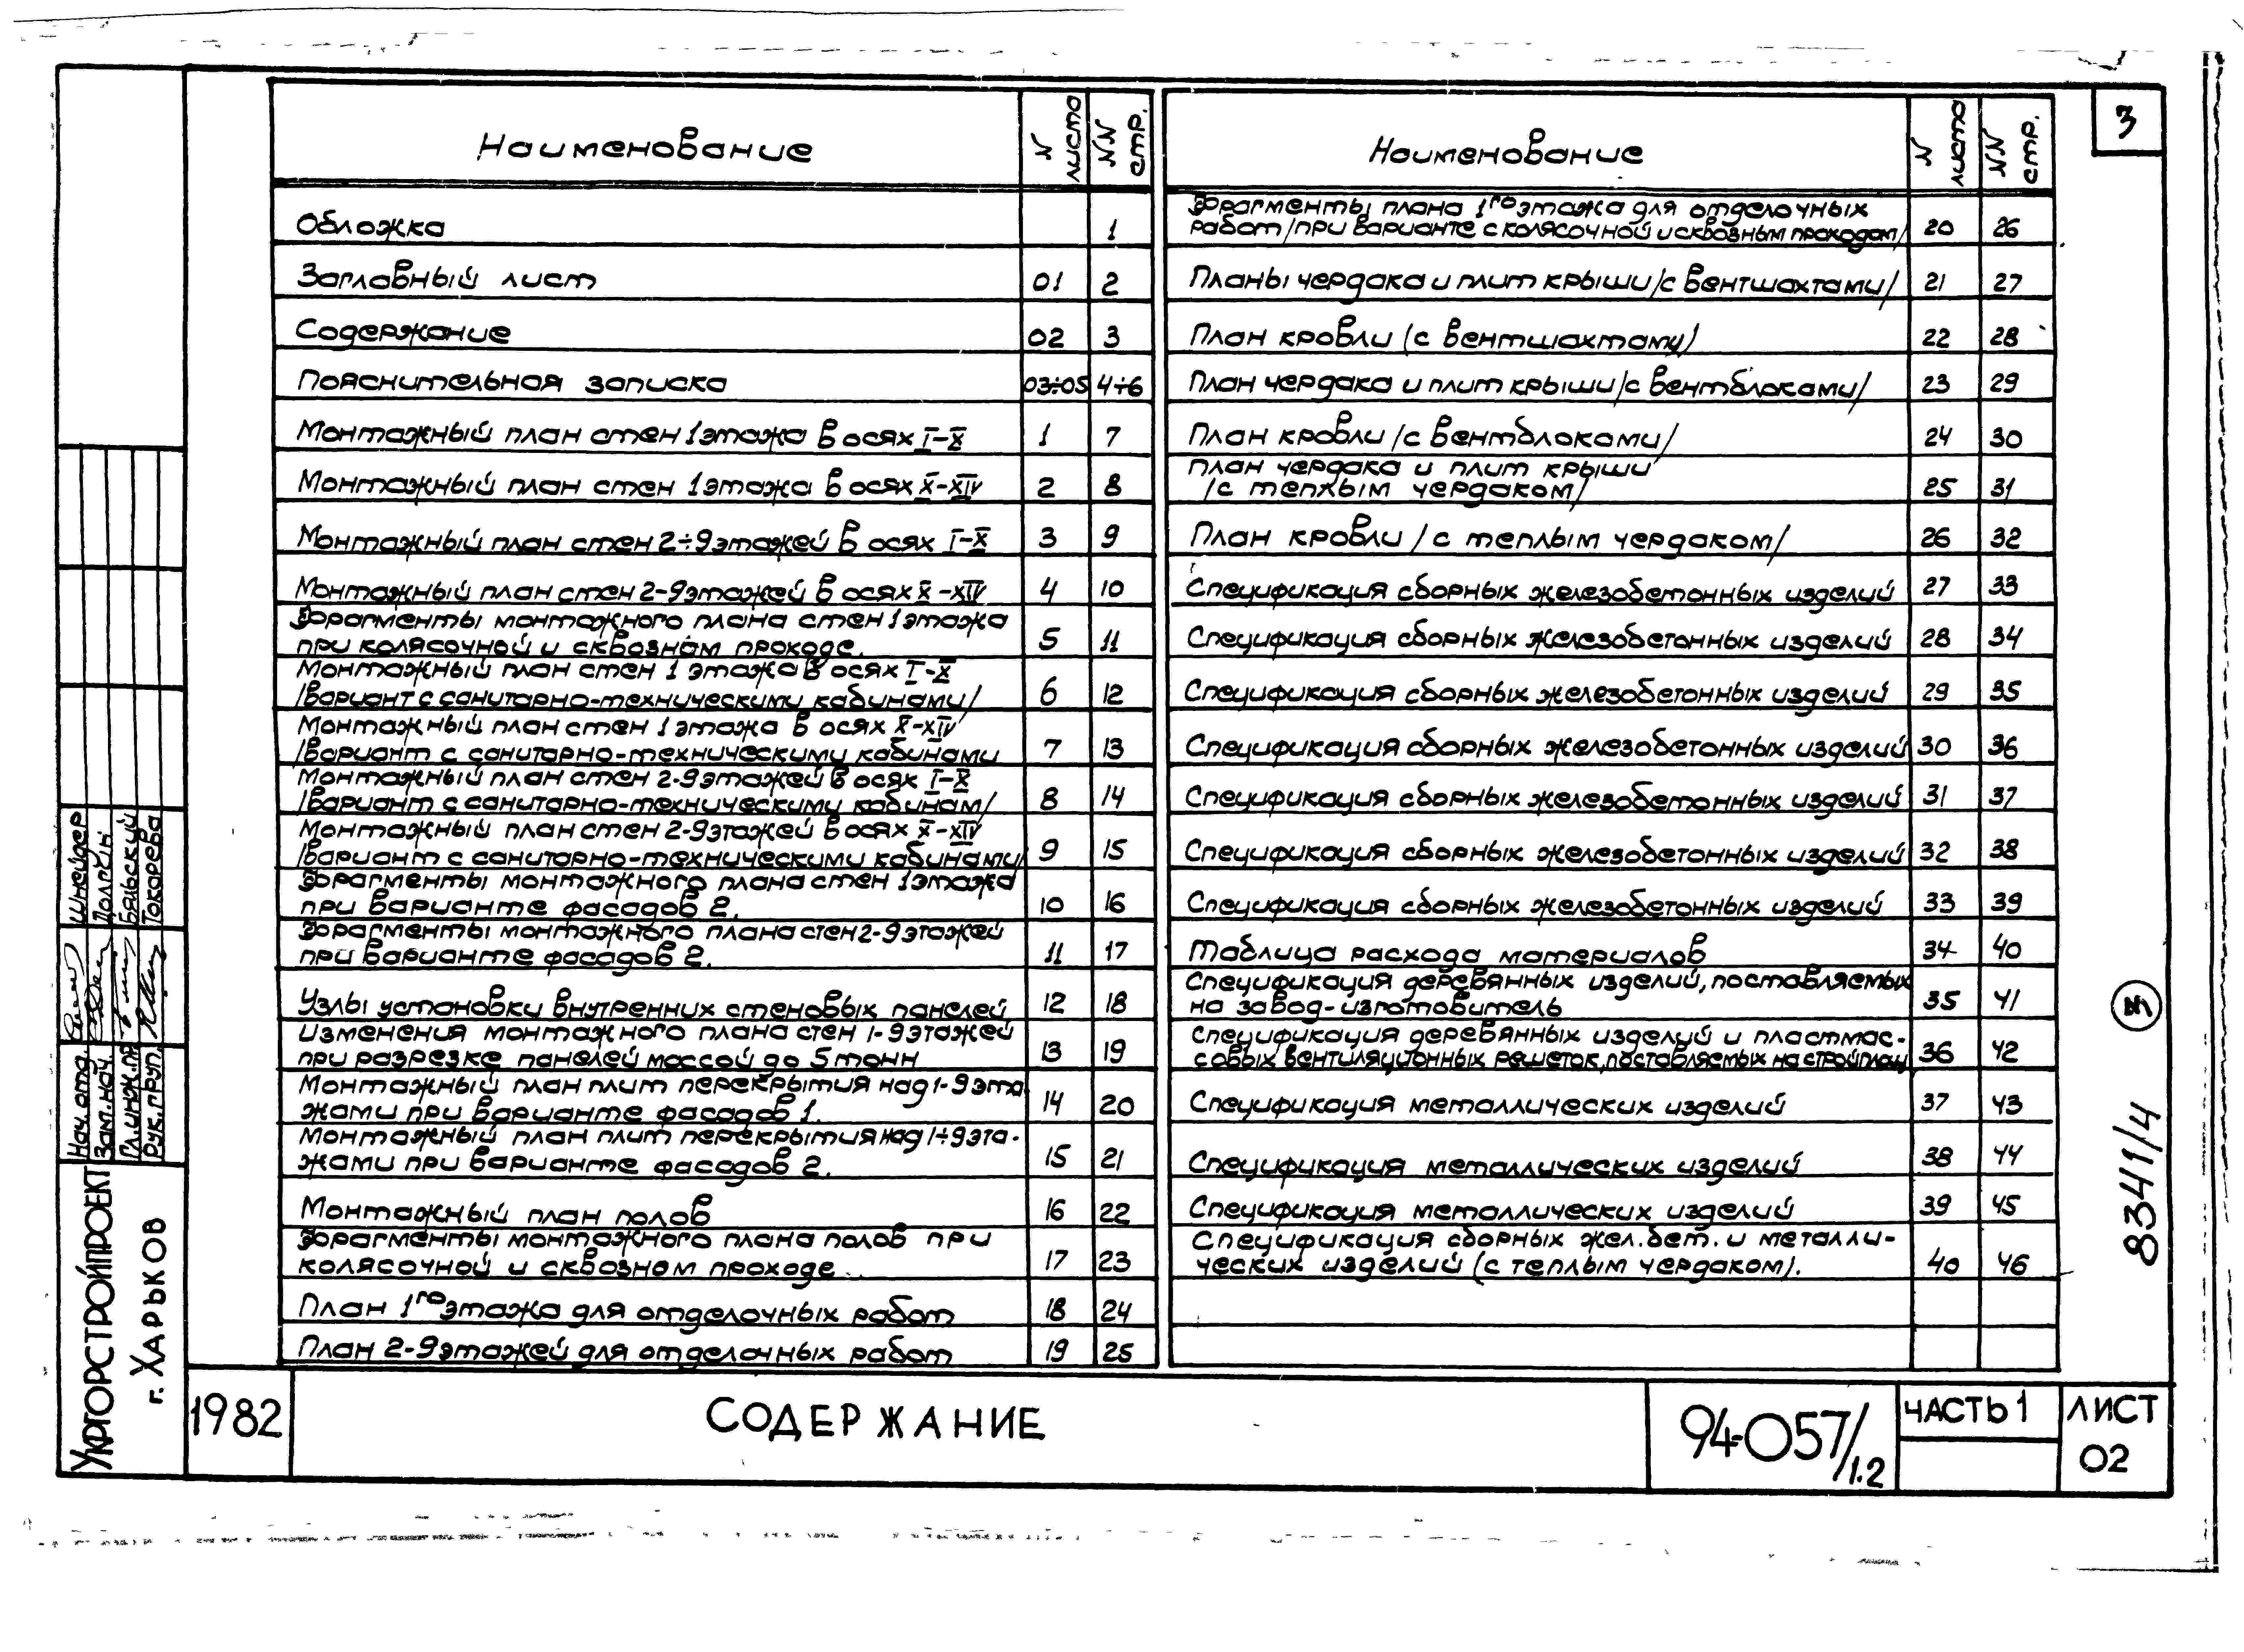 3
Наименование
N листа
NN стр.
Обложка 1
Заглавный лист 01 2
Содержание 02 3
Пояснительная записка 03÷05 4÷6
Монтажный план стен 1 этажа в осях I-X 1 7
Монтажный план стен 1 этажа в осях X-XIV 2 8
Монтажный план стен 2÷9 этажей в осях I-X 3 9
Монтажный план стен 2-9 этажей в осях X-XIV 4 10
Фрагменты монтажного плана стен 1 этажа
при колясочной и сквозном проходе. 5 11
Монтажный план стен 1 этажа в осях I-X
/вариант с санитарно-техническими кабинами/ 6 12
Монтажный план стен 1 этажа в осях X-XIV
/вариант с санитарно-техническими кабинами 7 13
Монтажный план стен 2-9 этажей в осях I-X
/вариант с санитарно-техническими кабинам/ 8 14
Монтажный план стен 2-9 этажей в осях X-XIV
/вариант с санитарно-техническими кабинами/ 9 15
Фрагменты монтажного плана стен 1 этажа
при варианте фасадов 2. 10 16
Фрагменты монтажного плана стен 2-9 этажей
при варианте фасадов 2. 11 17
Узлы установки внутренних стеновых панелей 12 18
Изменения монтажного плана стен 1-9 этажей
при разрезке панелей массой до 5 тонн 13 19
Монтажный план плит перекрытия над 1-9 эта
жами при варианте фасадов 1. 14 20
Монтажный план плит перекрытия над 1÷9 эта-
жами при варианте фасадов 2. 15 21
Монтажный план полов 16 22
Фрагменты монтажного плана полов при
колясочной и сквозном проходе. 17 23
План 1го этажа для отделочных работ 18 24
План 2-9 этажей для отделочных работ 19 25
Наименование
N листа
NN стр.
Фрагменты плана 1го этажа для отделочных
работ /при варианте с колясочной и сквозным проходом/ 20 26
Планы чердака и плит крыши /с вентшахтами/ 21 27
План кровли (с вентшахтами) 22 28
План чердака и плит крыши /с вентблоками/ 23 29
План кровли /с вентблоками/ 24 30
План чердака и плит крыши
/с теплым чердаком/ 25 31
План кровли /с теплым чердаком/ 26 32
Спецификация сборных железобетонных изделий 27 33
Спецификация сборных железобетонных изделий 28 34
Спецификация сборных железобетонных изделий 29 35
Спецификация сборных железобетонных изделий 30 36
Спецификация сборных железобетонных изделий 31 37
Спецификация сборных железобетонных изделий 32 38
Спецификация сборных железобетонных изделий 33 39
Таблица расхода материалов 34 40
Спецификация деревянных изделий, поставляемых
на завод-изготовитель 35 41
Спецификация деревянных изделий и пластмас-
совых вентиляционных решеток, поставляемых на стройплощ 36 42
Спецификация металлических изделий 37 43
Спецификация металлических изделий 38 44
Спецификация металлических изделий 39 45
Спецификация сборных жел. бет. и металли-
ческих изделий (с теплым чердаком). 40 46
8341/4
Нач. отд. Шнейдер
Зам. нач.
Гл. инж. пр. Бяльский
Рук. груп. Токарева
УКРГОРСТРОЙПРОЕКТ
г. ХАРЬКОВ
1982
СОДЕРЖАНИЕ
94-057/1.2
ЧАСТЬ 1
ЛИСТ
02